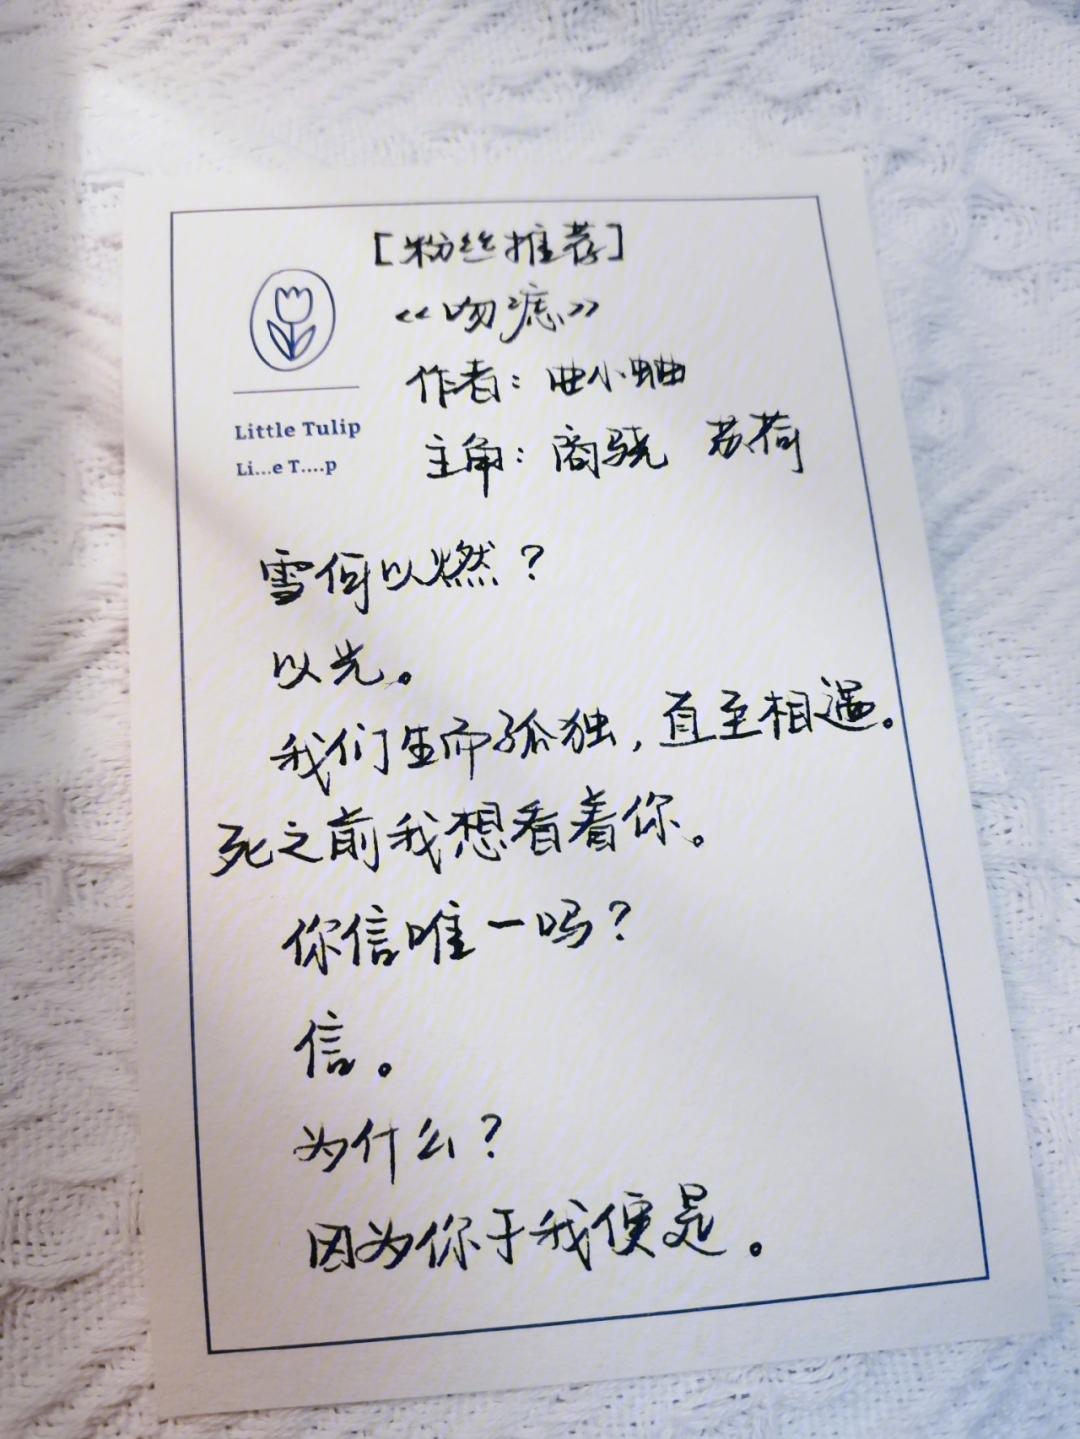 [粉丝推荐]
《吻痣》
作者：曲小蛐
主角：商骁 苏荷
Little Tulip
Li...e T....p
雪何以燃？
以光。
我们生而孤独，直至相遇。
死之前我想看着你。
你信唯一吗？
信。
为什么？
因为你于我便是。